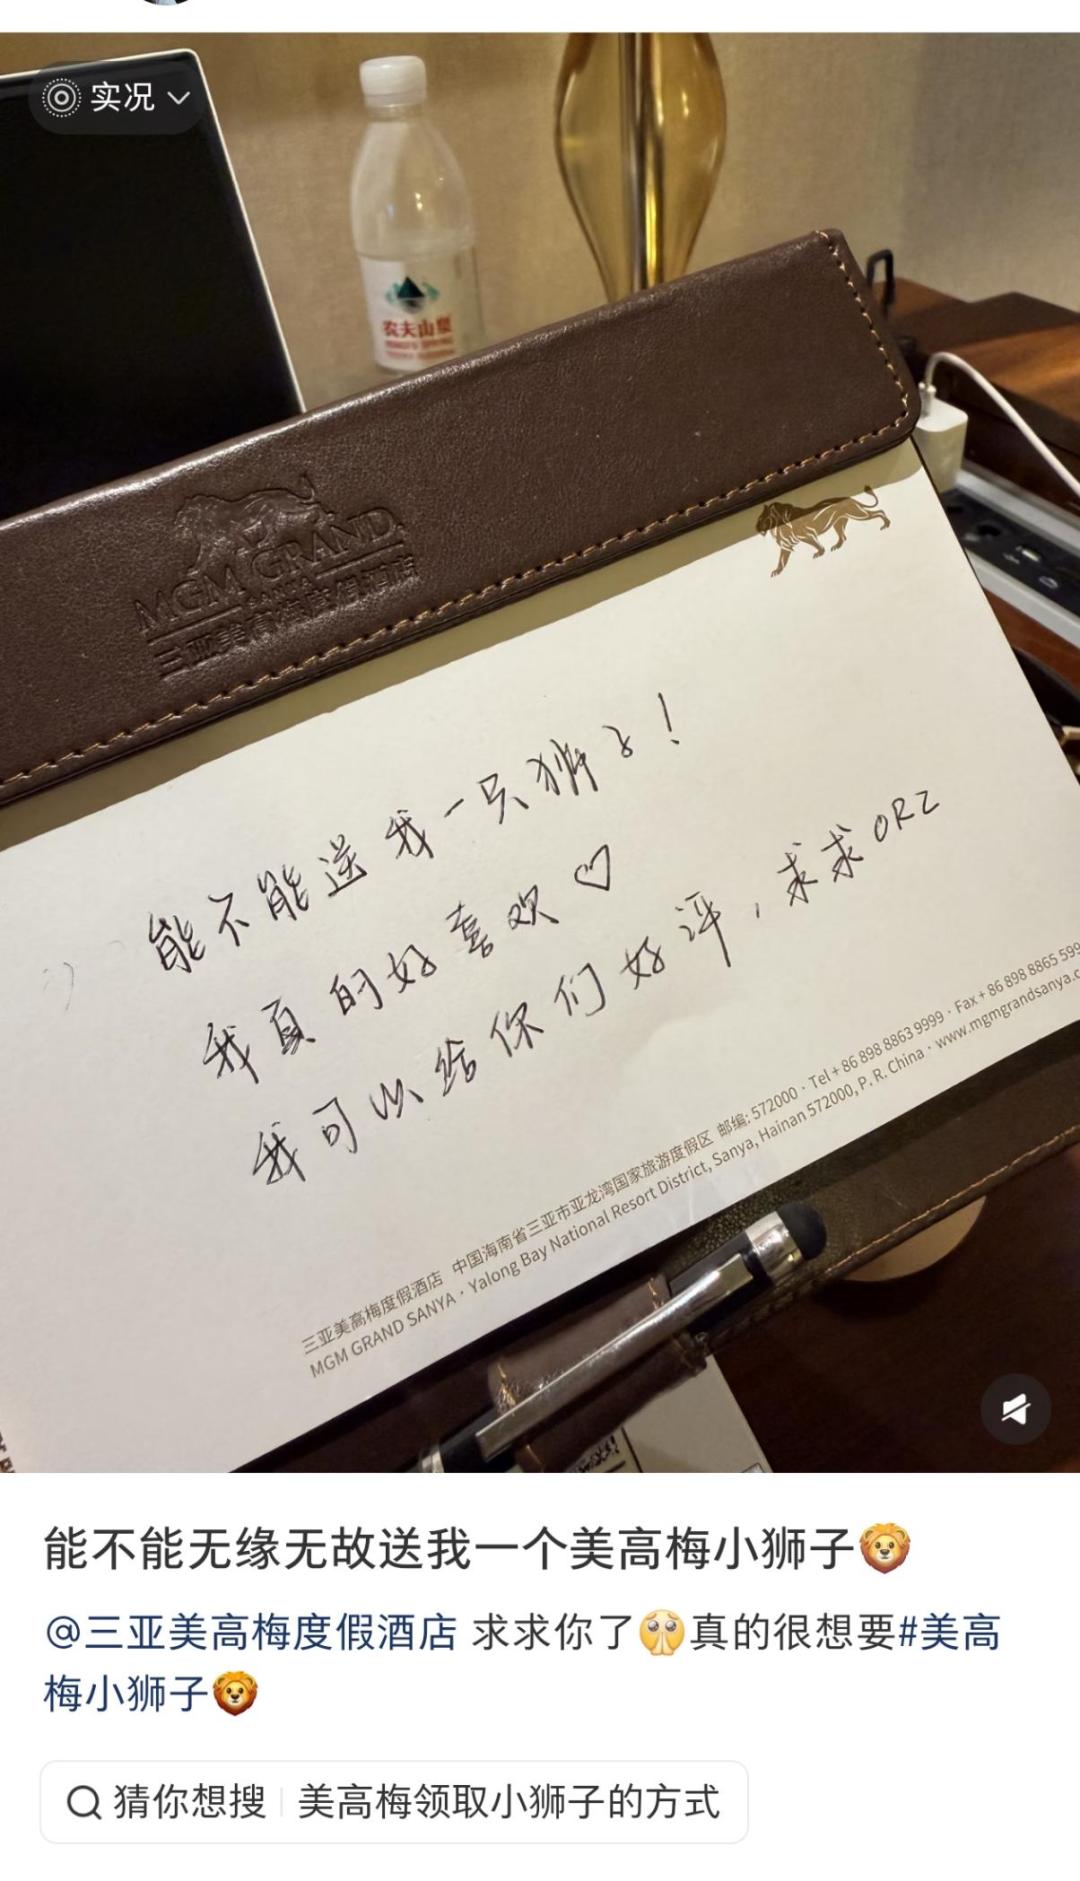 实况
农夫山泉
MGM GRAND
SANYA
三亚美高梅度假酒店
能不能送我一只狮子！
我真的好喜欢♡
我可以给你们好评，求求ORZ
三亚美高梅度假酒店 中国海南省三亚市亚龙湾国家旅游度假区 邮编: 572000 · Tel + 86 898 8863 9999 · Fax + 86 898 8865 599
MGM GRAND SANYA · Yalong Bay National Resort District, Sanya, Hainan 572000, P. R. China · www.mgmgrandsanya.c
能不能无缘无故送我一个美高梅小狮子🦁
@三亚美高梅度假酒店 求求你了🥹真的很想要#美高
梅小狮子🦁
猜你想搜 美高梅领取小狮子的方式